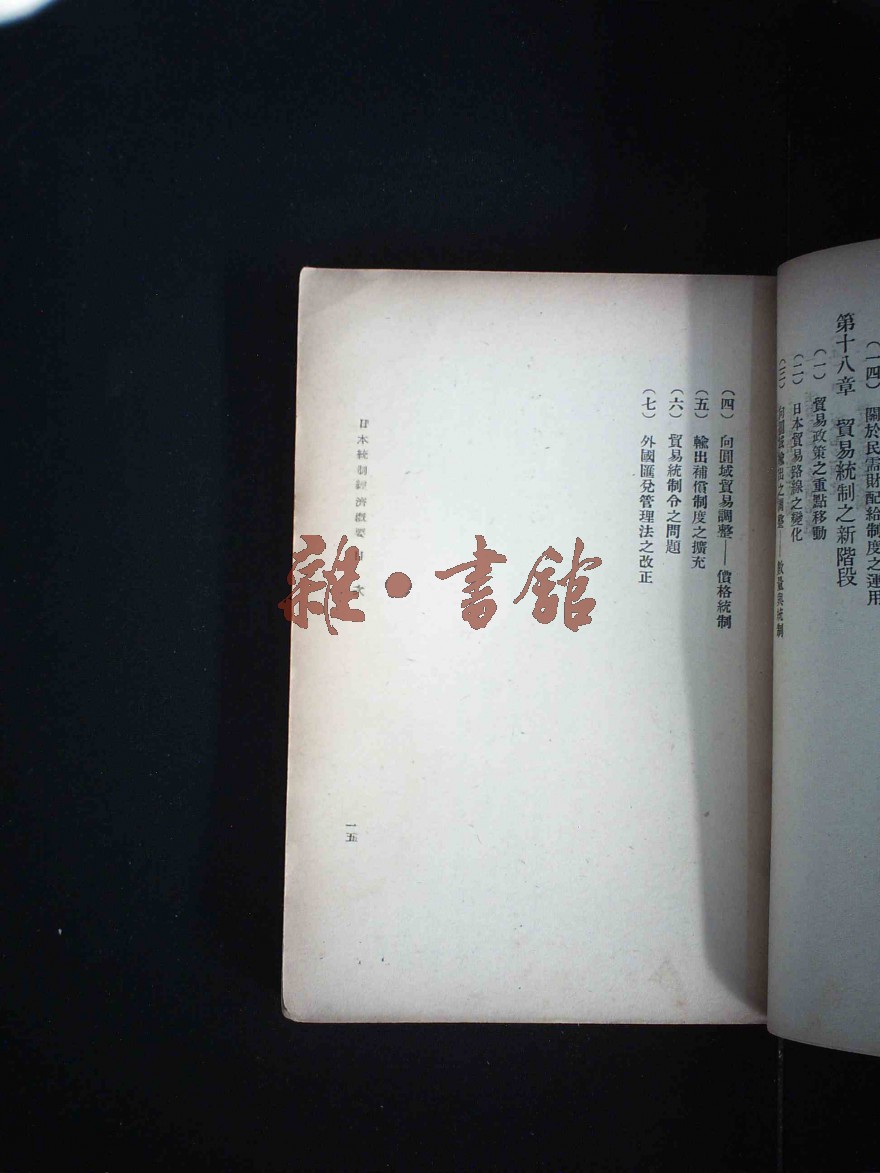 （一四）　關於民需財配給制度之運用
第十八章　貿易統制之新階段
（一）　貿易政策之重點移動
（二）　日本貿易路線之變化
（三）　向圓域輸出之調整——數量與統制
（四）　向圓域貿易調整——價格統制
（五）　輸出補償制度之擴充
（六）　貿易統制令之問題
（七）　外國匯兌管理法之改正
日本統制經濟概要　目　次
一五
雜·書館